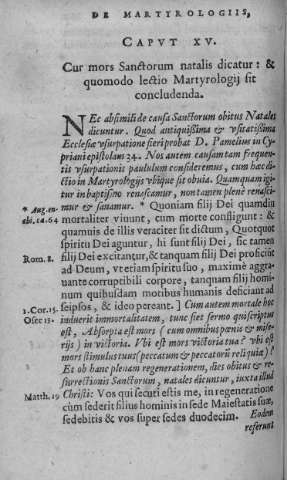 DE MARTYROLOGIIS,
CAPVT XV.
Cur mors Sanctorum natalis dicatur: &
quomodo lectio Martyrologij sit
concludenda.
NEc absimili de causa Sanctorum obitus Natales
dicuntur. Quod antiquißima & vsitatißima
Ecclesiæ vsurpatione fieri probat D. Pamelius in Cy-
priani epistolam 34. Nos autem causam tam frequen-
tis vsurpationis paulùm consideremus, cum hæc di-
ctio in Martyrologijs vbique sit obuia. Quamquam igi-
tur in baptismo renascamur, non tamen plenè renasci-
mur & sanamur. * Quoniam filij Dei quamdiu
* Aug. en-
chi. ca. 64
mortaliter viuunt, cum morte confligunt: &
quamuis de illis veraciter sit dictum, Quotquot
spiritu Dei aguntur, hi sunt filij Dei, sic tamen
Rom. 8.
filij Dei excitantur, & tanquam filij Dei proficiũt
ad Deum, vt etiam spiritu suo, maximè aggra-
uante corruptibili corpore, tanquam filij homi-
num quibusdam motibus humanis deficiant ad
1. Cor. 15.
seipsos, & ideo pereant.] Cum autem mortale hoc
Osee 13.
induerit immortalitatem, tunc fiet sermo qui scriptus
est, Absorpta est mors (cum omnibus pœnis & mise-
rijs) in victoria. Vbi est mors victoria tua? vbi est
mors stimulus tuus (peccatum & peccatorũ reliquiæ)?
Et ob hanc plenam regenerationem, dies obitus & re-
surrectionis Sanctorum, natales dicuntur, iuxta illud
Matth. 19
Christi: Vos qui secuti estis me, in regeneratione
cum sederit filius hominis in sede Maiestatis suæ,
sedebitis & vos super sedes duodecim. Eodem
referunt